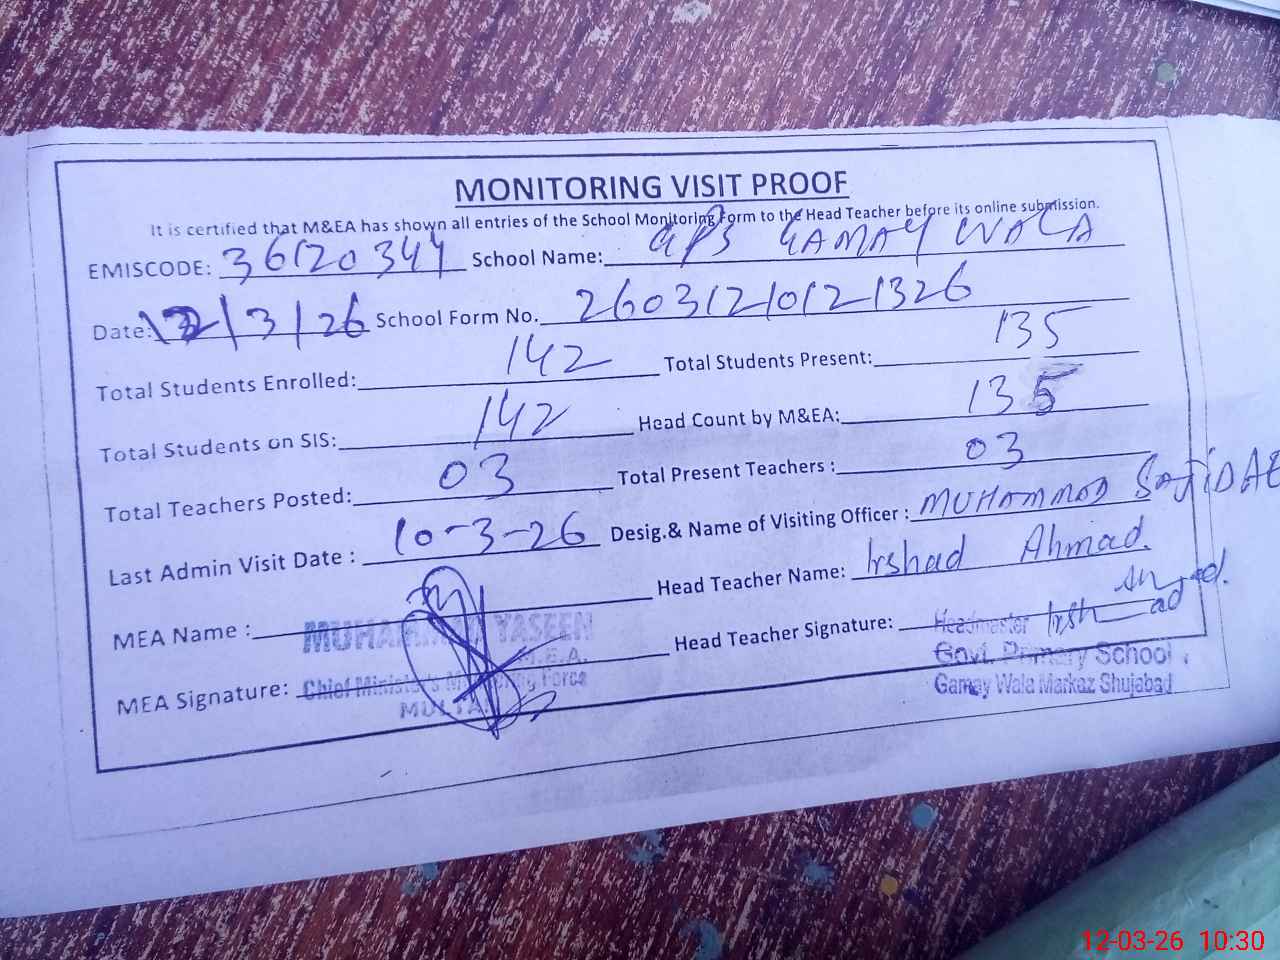 MONITORING VISIT PROOF
It is certified that M&EA has shown all entries of the School Monitoring Form to the Head Teacher before its online submission.
EMISCODE: 36120344 School Name: GPS GAMAY WALA
Date: 12/3/26 School Form No. 26031210121326
Total Students Enrolled: 142 Total Students Present: 135
Total Students on SIS: 142 Head Count by M&EA: 135
Total Teachers Posted: 03 Total Present Teachers : 03
Last Admin Visit Date : 10-3-26 Desig.& Name of Visiting Officer : MUHAMMAD SAJID AE
MEA Name : MUHAMMAD YASEEN Head Teacher Name: Irshad Ahmad.
M.E.A.
MEA Signature: Chief Minister's Monitoring Force Head Teacher Signature: Irshad
MULTAN
Headmaster
Govt. Primary School
Gamay Wala Markaz Shujabad
12-03-26 10:30